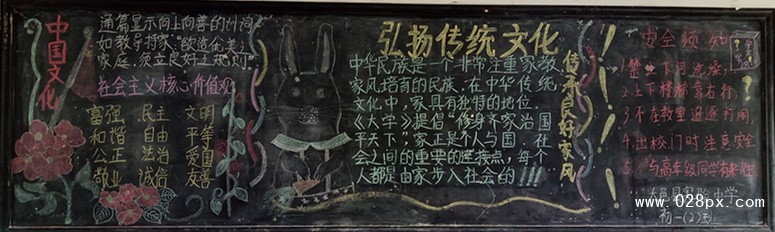 中国文化
通篇显示向上向善的
如教导持家"欲造优美之
家庭,须立良好之规则"
社会主义核心价值观
富强 民主 文明
和谐 自由 平等
公正 法治 爱国
敬业 诚信 友善
弘扬传统文化
中华民族是一个非常注重家教
家风培育的民族.在中华传统
文化中,家具有独特的地位.
《大学》提倡"修身齐家治国
平天下".家正是个人与国.社
会之间的重要的连接点,每个
人都是由家步入社会的!!!
传承良好家风
安全须知
1.禁止下河洗澡;
2.上下楼梯靠右行;
3.不在教里追逐打闹,
4.出校门时注意安全
5.与高年级同学
初一(2)
www.028px.com